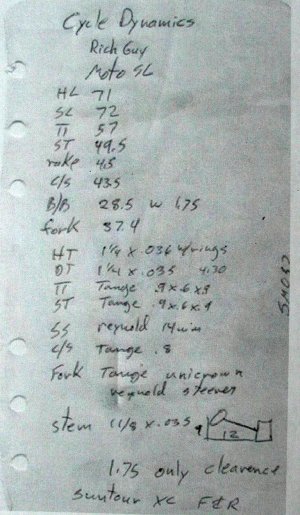 Cycle Dynamics
Rich Guy
Moto SL
HL 71
SL 72
TT 57
ST 49.5
rake 4.5
C/S 43.5
B/B 28.5 w 1.75
fork 37.4
HT 1¼ x .036 w/rings
DT 1¼ x .035 4130
TT Tange .9x.6x.9
ST Tange .9x.6x.9
SS reynold 14mm
C/S Tange .8
Fork Tange unicrown
reynold steerer
stem 1 1/8 x .035
12
1.75 only clearence
suntour XC F&R